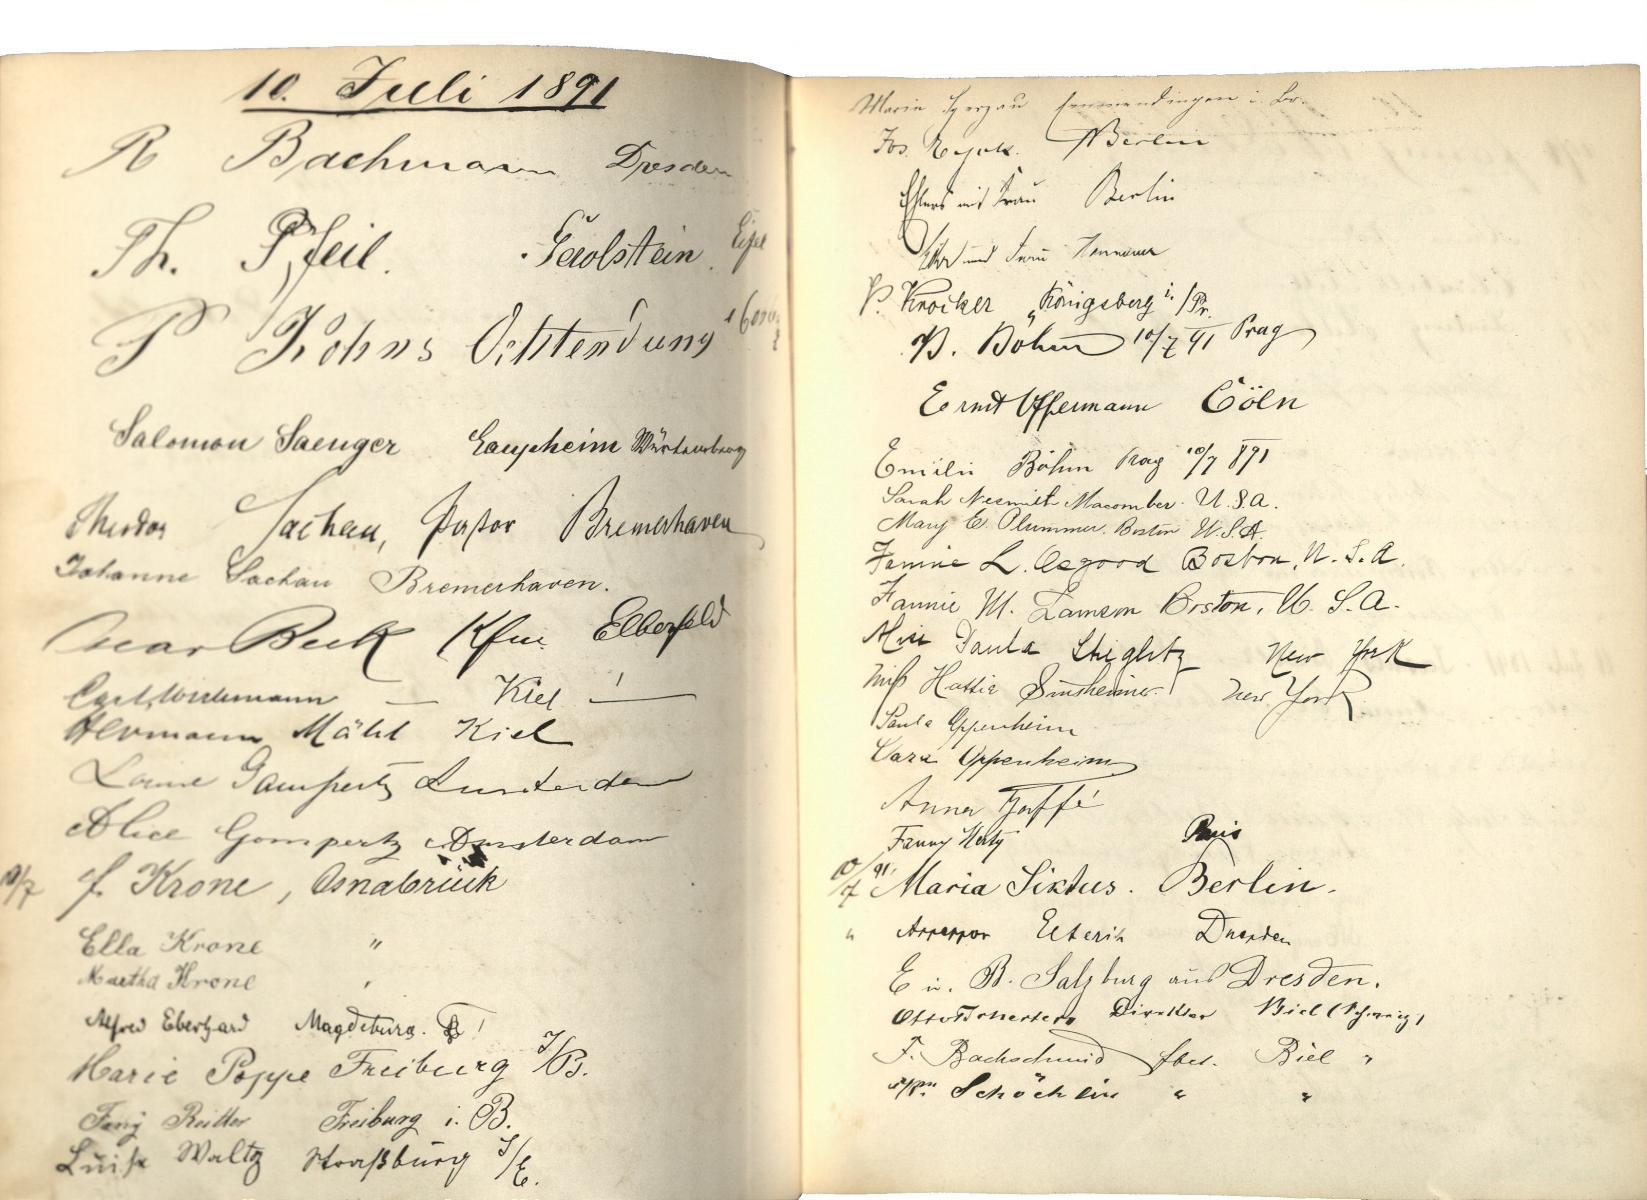 10. Juli 1891
R Bachmann Dresden
Th. Pfeil. Gerolstein Eifel
P Kohns Ochtendung
Salomon Saenger Laupheim Würtemberg
Theodor Sachau, Pastor Bremerhaven
Johanne Sachau Bremerhaven.
Oscar Beck Kfm. Elberfeld
Carl Wiedemann — Kiel ! —
Hermann Mähl Kiel
Gompertz Amsterdam
Alice Gompertz Amsterdam
10/7 J. Krone, Osnabrück
Ella Krone "
Martha Krone "
Alfred Eberhard Magdeburg.
Marie Poppe Freiburg I/B.
Fany Reitter Freiburg i. B.
Luise Waltz Straßburg I/E.
Maria Emmendingen i. Br.
Jos. Berlin
Ehlers mit Frau Berlin
und Frau Hannover
P. Krocker, Königsberg i./Pr.
B. Böhm 10/7 91 Prag
Ernst Offermann Cöln
Emilie Böhm Prag 10/7 891
Sarah Nesmith Macomber. U.S.A.
Mary E. Plummer. Boston U.S.A.
Fannie L. Osgood Boston, U.S.A.
Fannie M. Lamson Boston, U.S.A.
Miss Paula Stieglitz New York
Miss Hattie Sinsheimer. New York
Paula Oppenheim
Clara Oppenheim
Anna Jaffé
Fanny Hertz Paris
10/7 91 Maria Sixtus. Berlin.
" Assessor Dresden
E u. B. Salzburg aus Dresden.
Otto Direktor Biel (Schweiz)
F. Bachschmid Biel "
Schöchlin " "